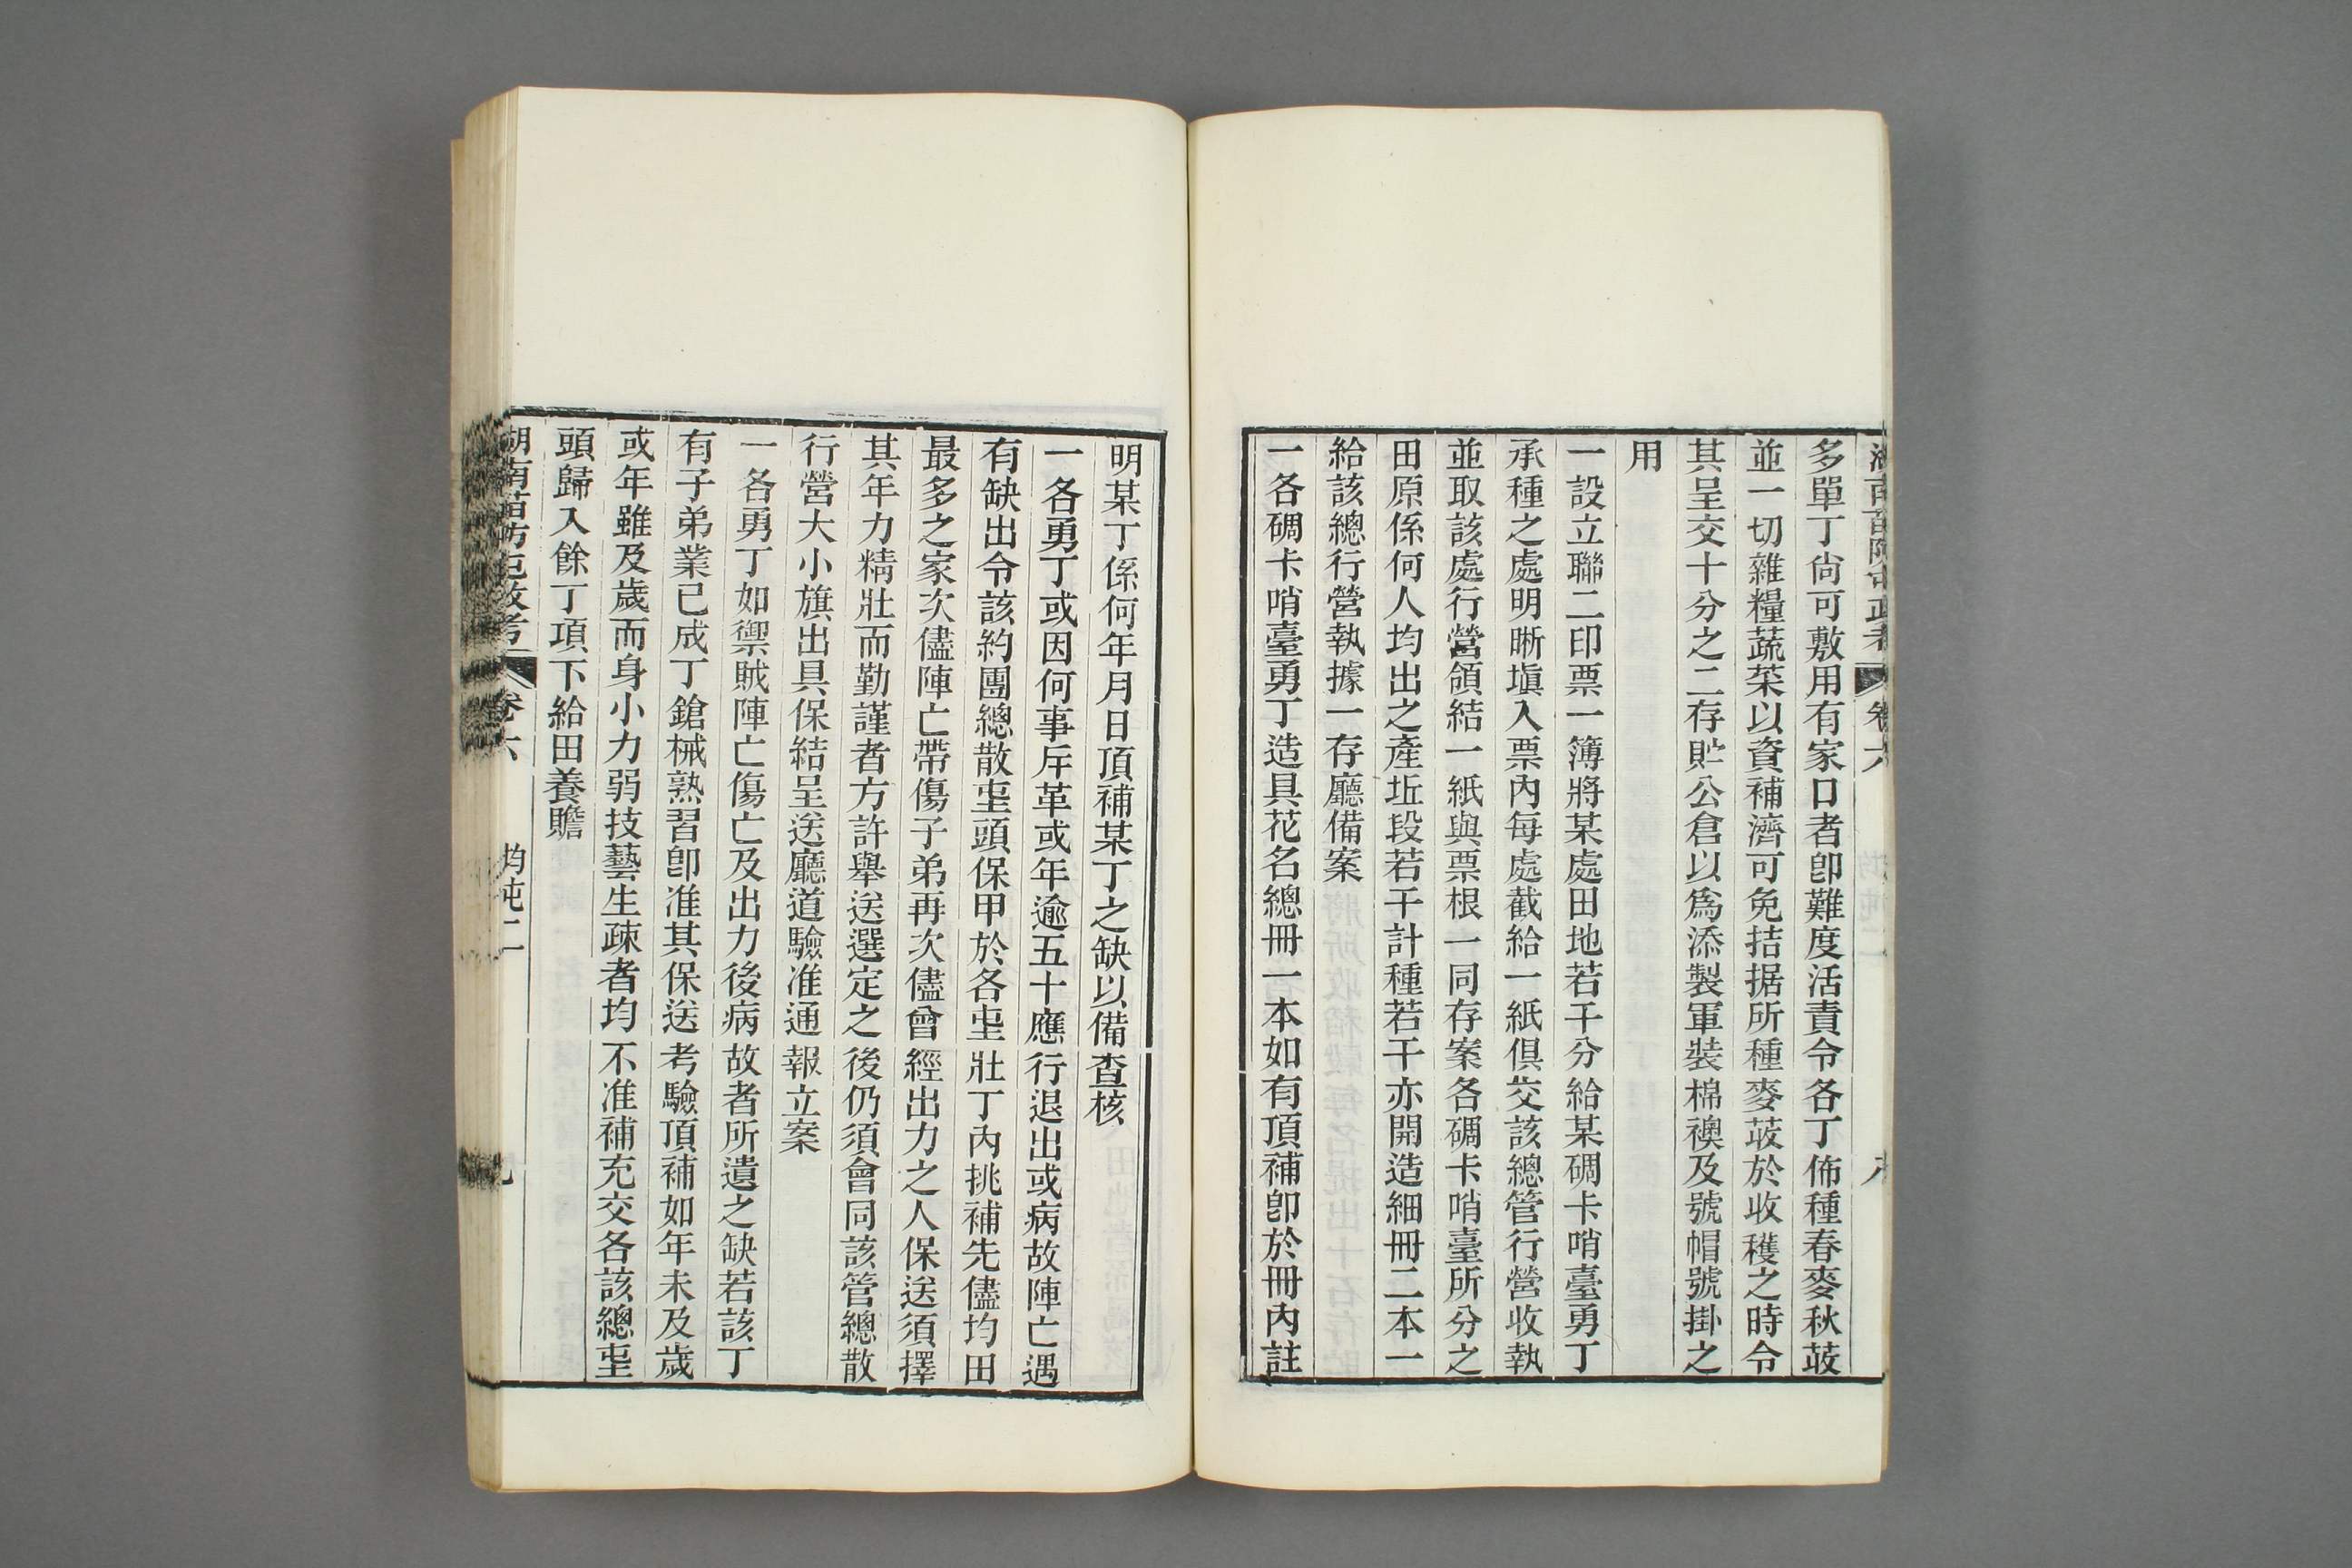 多單丁尙可敷用有家口者卽難度活責令各丁佈種春麥秋荍
並一切雜糧蔬菜以資補濟可免拮据所種麥荍於收穫之時令
其呈交十分之二存貯公倉以爲添製軍裝棉襖及號帽號掛之
用
一設立聯二印票一簿將某處田地若干分給某碉卡哨臺勇丁
承種之處明晰塡入票內每處截給一紙俱交該總管行營收執
並取該處行營領結一紙與票根一同存案各碉卡哨臺所分之
田原係何人均出之產坵段若干計種若干亦開造細冊二本一
給該總行營執據一存廳備案
一各碉卡哨臺勇丁造具花名總冊一本如有頂補卽於冊內註
明某丁係何年月日頂補某丁之缺以備查核
一各勇丁或因何事斥革或年逾五十應行退出或病故陣亡遇
有缺出令該約團總散屯頭保甲於各屯壯丁內挑補先儘均田
最多之家次儘陣亡帶傷子弟再次儘曾經出力之人保送須擇
其年力精壯而勤謹者方許舉送選定之後仍須會同該管總散
行營大小旗出具保結呈送廳道驗准通報立案
一各勇丁如禦賊陣亡傷亡及出力後病故者所遺之缺若該丁
有子弟業已成丁鎗械熟習卽准其保送考驗頂補如年未及歲
或年雖及歲而身小力弱技藝生疎者均不准補充交各該總屯
頭歸入餘丁項下給田養贍
湖南苗防屯政考 卷六 均屯二 九